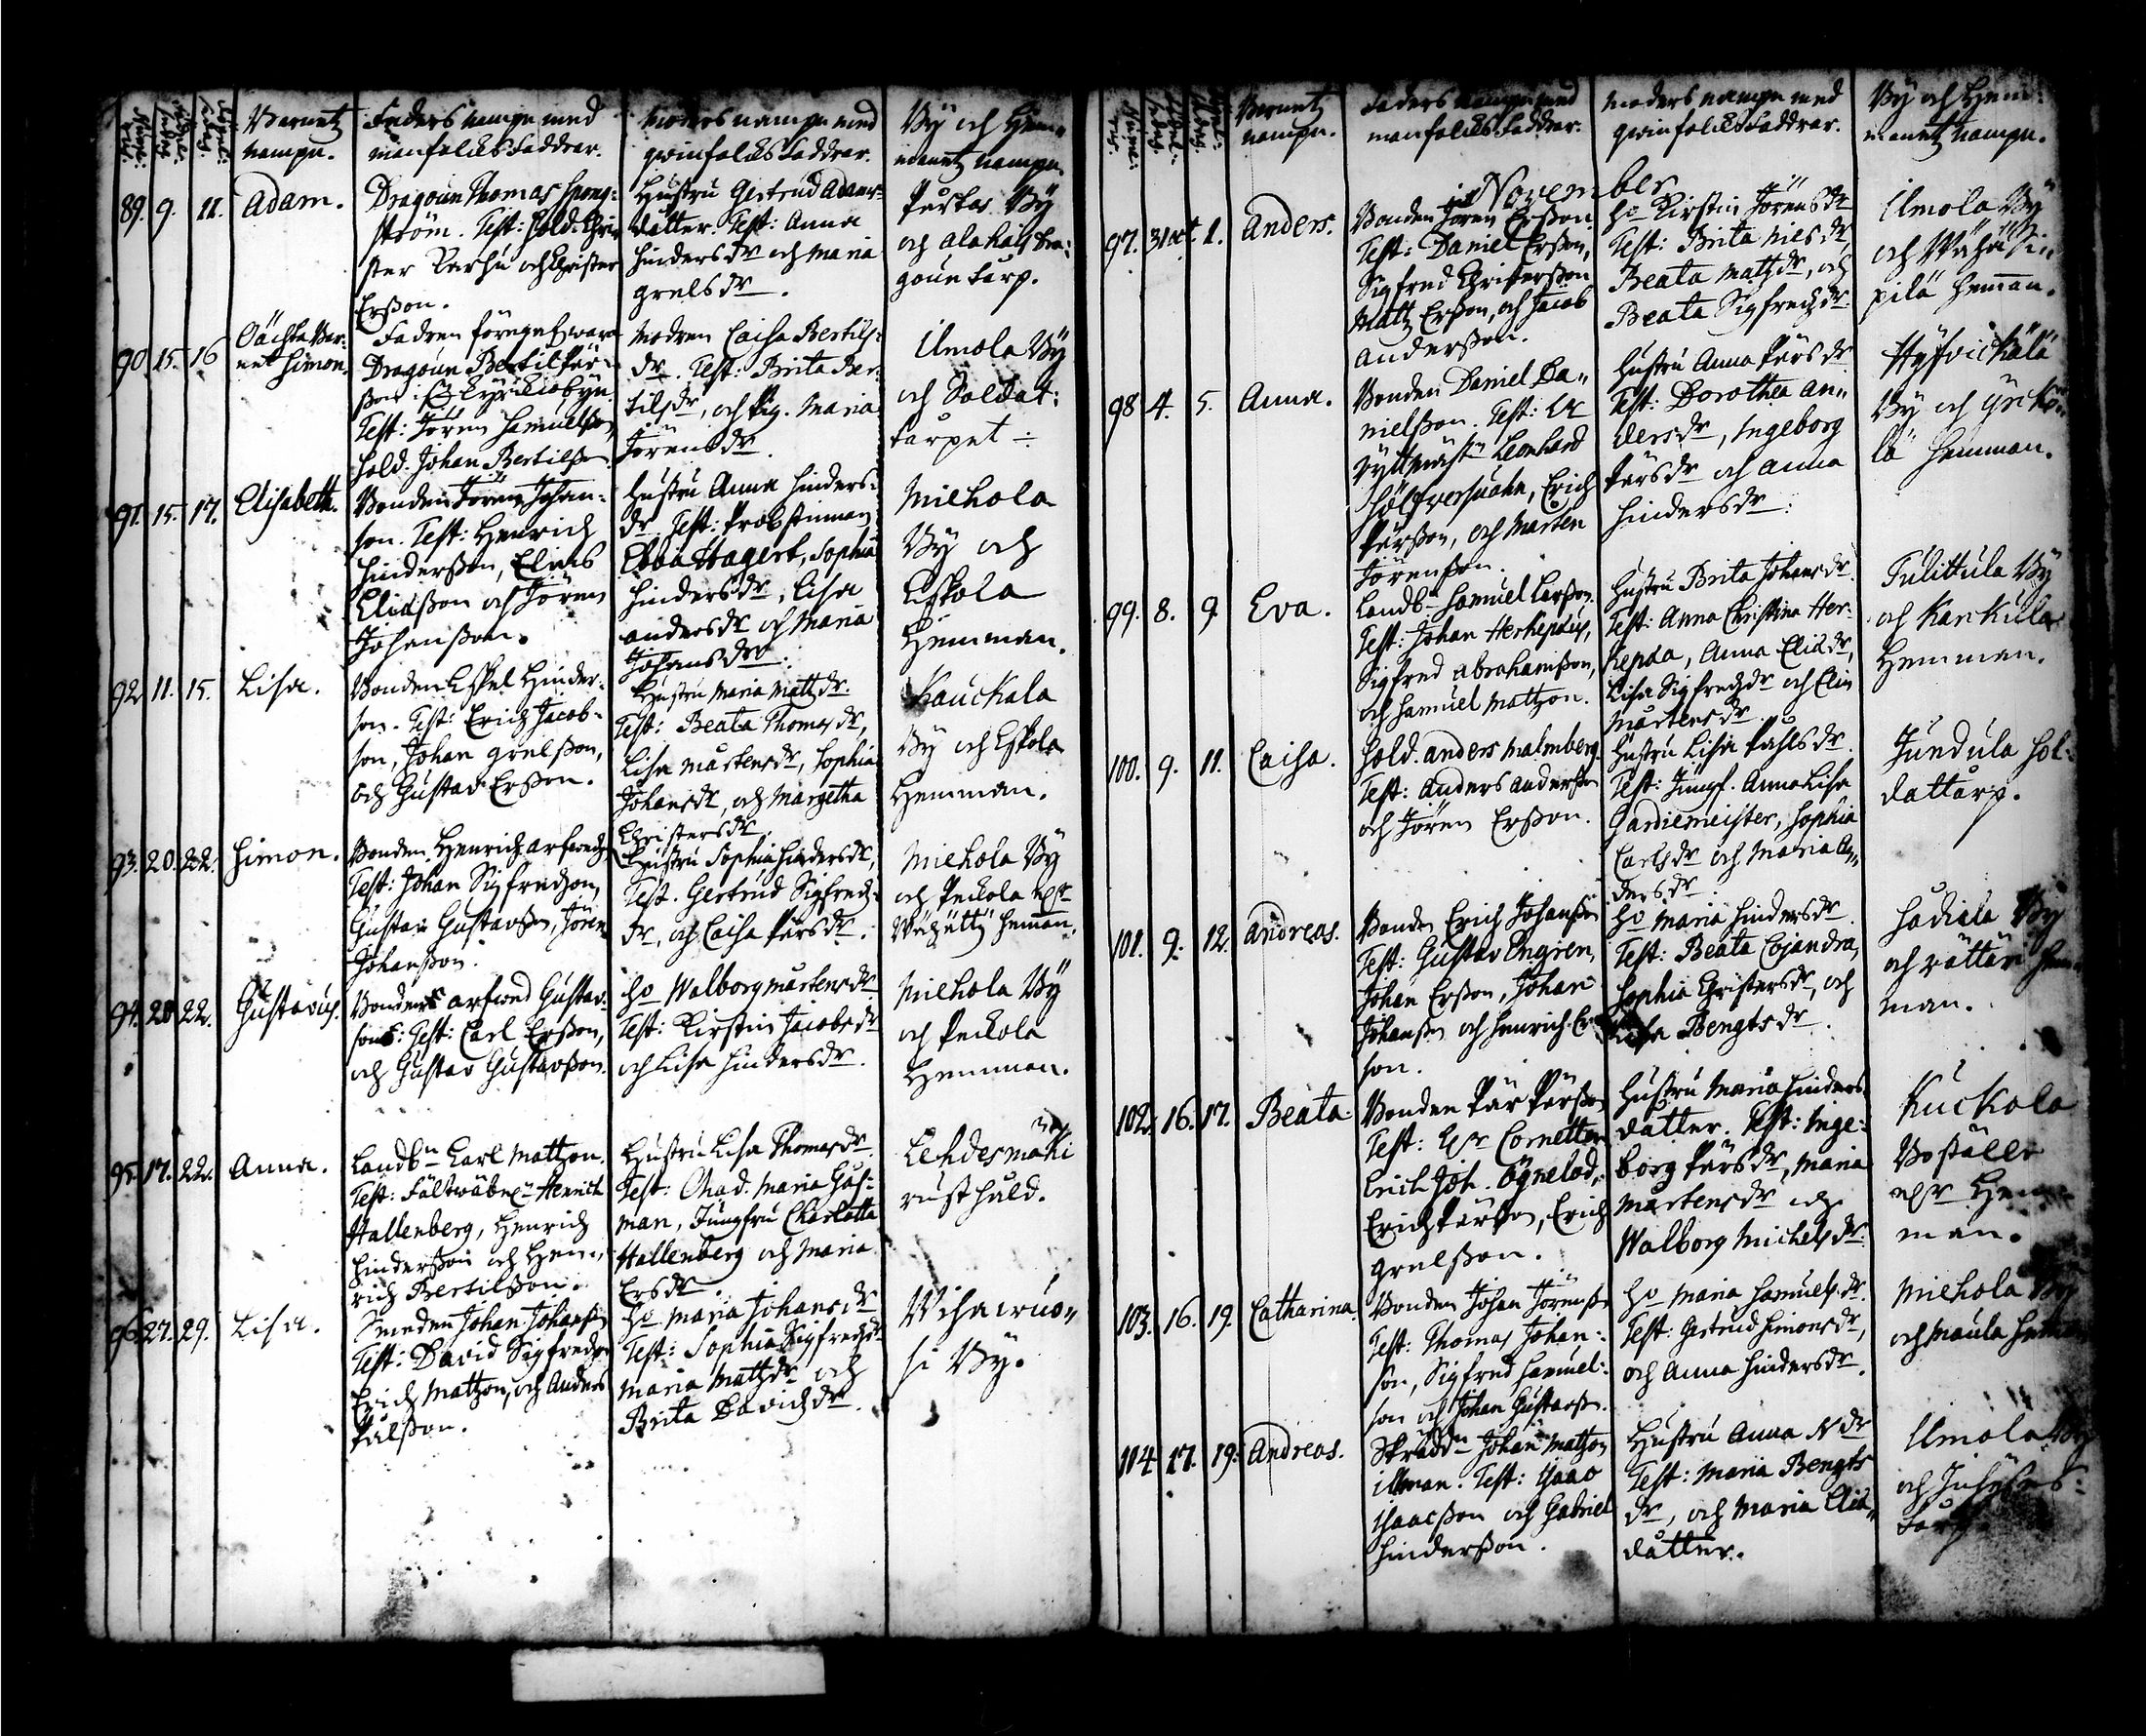 Barnetz
nampn.
Faders nampn med
manfolcks faddrar.
Moders nampn med
qwinfolcks faddrar.
By och Hem-
manetz nampn.
89. 9. 11. Adam.
Dragoun Thomas
ström. Test: Sold: Chri-
ster Karhu och Christer
Erßon.
Hustru Gertrud Adams-
datter. Test: Anna
Hindersdr och Maria
Grelsdr.
Purkas By
och Alahäis Dra-
goune torp.
90. 15. 16
Oächta Bar-
net Simon.
Fadren föregifwara
Dragoun Bertil Pär-
ßon i Kyrckiobyn.
Test: Jören Samuelßon,
Sold. Johan Bertilßon.
Modren Caisa Bertils-
dr. Test: Brita Ber-
tilsdr, och Pig. Maria
Jörensdr.
Ilmola By
och Soldat-
torpet
91. 15. 17. Elisabeth.
Bonden Jören Johan-
son. Test: Henrich
Hinderßon, Elias
Eliaßon och Jören
Johanßon.
Hustru Anna Hinders-
dr. Test: Probstinnan
Ebba Hagert, Sophia
Hindersdr, Lisa
Andersdr och Maria
Johansdr.
Miehola
By och
Eskola
Hemman.
92. 11. 15. Lisa.
Bonden Eskel Hinder-
son. Test: Erich Jacob-
son, Johan Grelsson,
och Gustav Erßon.
Hustru Maria Mattzdr.
Test: Beata Thomasdr,
Lisa Mårtensdr, Sophia
Johansdr, och Margetha
Christersdr.
Kauckala
By och Eskola
Hemman.
93. 20. 22. Simon.
Bonden Henrich Arfwedz.
Test: Johan Sigfredzon,
Gustav Gustavßon, Jören
Johanßon.
Hustru Sophia Hindersdr,
Test. Gertrud Sigfredz-
dr, och Caisa Pärsdr.
Miehola By
och Peckola
Hemman.
94. 20 22. Gustavus.
Bonden Arfwed Gustav-
son: Test: Carl Erßon,
och Gustav Gustavßon.
Ho Walborg Mårtensdr
Test: Kirstin Jacobsdr
och Lisa Hindersdr.
Miehola By
och Peckola
Hemman.
95. 17. 22. Anna.
Landbn Carl Mattzon.
Test: Fältwäbeln Henrich
Hallenberg, Henrich
Hinderßon och Hen-
rich Bertilßon.
Hustru Lisa Thomasdr.
Test: Mad. Maria Gus-
man, Jungfru Charlotta
Hallenberg och Maria
Ersdr.
Lehdesmäki
rusthåld.
96. 27. 29. Lisa.
Smeden Johan Johanßon
Test: David Sigfredzon
Erich Mattzon, och Anders
Pålßon.
Ho Maria Johansdr
Test: Sophia Sigfredzdr
Maria Mattzdr och
Brita Davidzdr.
Wihawuo-
si By.
Barnetz
nampn.
Faders nampn med
manfolcks faddrar.
Moders nampn med
qwinfolcks faddrar.
By och Hem-
manetz nampn.
in November
97. 31 oct. 1. Anders.
Bonden Jören Erßon
Test: Daniel Erßon,
Sigfred Christerßon
Mattz Erßon, och Jacob
Anderßon.
Ho Kirstin Jörensdr
Test: Brita Nilsdr
Beata Mattzdr, och
Beata Sigfredzdr.
Ilmola By
och Wähäsi-
pilä Hemman.
98 4. 5. Anna.
Bonden Daniel Da-
nielßon. Test: Hr
Ryttmäst. Leonhard
Erich
Pärßon, och Mårten
Jörenßon.
Hustru Anna Pärsdr
Test: Dorothea An-
dersdr, Ingeborg
Pärsdr och Anna
Hindersdr.
Hyfvickälä
By och
lä Hemman.
99. 8. 9 Eva.
Landb. Samuel Larßon.
Test: Johan Herkepæus,
Sigfred Abrahamßon,
och Samuel Mattzon.
Hustru Brita Johansdr.
Test: Anna Christina Her-
kepæa, Anna Eliædr,
Lisa Sigfredzdr och Elin
Mårtensdr
Tulittula By
och Karkula
Hemman.
100. 9. 11. Caisa.
Sold. Anders Malmberg.
Test: Anders Anderßon
och Jören Erßon.
Hustru Lisa Påhlsdr.
Test: Jungf. Anna Lisa
Gardiemeister, Sophia
Carlsdr och Maria An-
dersdr.
Jundula Sol-
dattorp.
101. 9. 12. Andreas.
Bonden Erich Johanßon
Test: Gustav Engren,
Johan Erßon, Johan
Johanßon och Henrich Er-
son.
Ho Maria Hindersdr
Test: Beata Cojandra,
Sophia Christersdr, och
Lisa Bengtsdr.
Sadiala By
och Rättäri Hem-
man.
102. 16. 17. Beata.
Bonden Pär Pärßon
Test: Hr Cornetten
Erich Joh. Ögnelod,
Erich Pärßon, Erich
Grelßon.
Hustru Maria Hinders
datter. Test: Inge-
borg Pärsdr, Maria
Mårtensdr och
Walborg Michelsdr.
Kuckola
Boställe
Hem-
man.
103. 16. 19. Catharina.
Bonden Johan Jörenßon
Test: Thomas Johan-
son, Sigfred Samuel-
son och Johan Gustavßon.
Ho Maria Samuelsdr.
Test: Gertrud Simonsdr,
och Anna Hindersdr.
Miehola By
och Maula Hemman
104 17. 19. Andreas.
Skräddn Johan Mattzon
Illman. Test: Isaac
Isaacßon och Gabriel
Hinderßon.
Hustru Anna N dr
Test: Maria Bengts
dr, och Maria Eliæ
datter.
Ilmola By
och
torp.